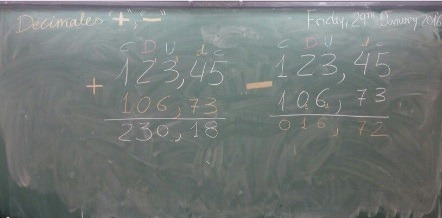 Decimales "+", "-"
Friday, 29th January 2016
C D U d c
+ 123,45
106,73
230,18
C D U d c
- 123,45
106,73
016,72